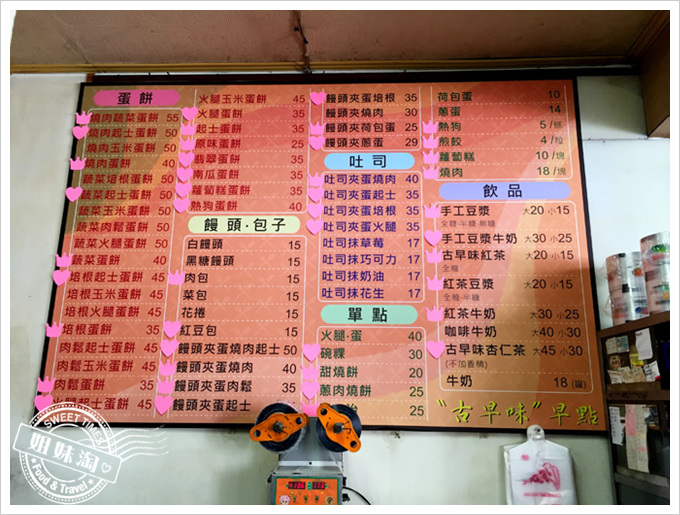 蛋餅
燒肉蔬菜蛋餅 55
燒肉起士蛋餅 50
燒肉玉米蛋餅 50
燒肉蛋餅 40
蔬菜培根蛋餅 50
蔬菜起士蛋餅 50
蔬菜玉米蛋餅 50
蔬菜肉鬆蛋餅 50
蔬菜火腿蛋餅 50
蔬菜蛋餅 40
培根起士蛋餅 45
培根玉米蛋餅 45
培根火腿蛋餅 45
培根蛋餅 35
肉鬆起士蛋餅 45
肉鬆玉米蛋餅 45
肉鬆蛋餅 35
火腿起士蛋餅 45
火腿玉米蛋餅 45
火腿蛋餅 35
起士蛋餅 35
原味蛋餅 25
翡翠蛋餅 35
南瓜蛋餅 35
蘿蔔糕蛋餅 35
熱狗蛋餅 35
饅頭·包子
白饅頭 15
黑糖饅頭 15
肉包 15
菜包 15
花捲 15
紅豆包 15
饅頭夾蛋燒肉起士 50
饅頭夾蛋燒肉 40
饅頭夾蛋肉鬆 35
饅頭夾蛋起士 35
饅頭夾蛋培根 35
饅頭夾燒肉 30
饅頭夾荷包蛋 25
饅頭夾蔥蛋 29
吐司
吐司夾蛋燒肉 40
吐司夾蛋起士 35
吐司夾蛋培根 35
吐司夾蛋火腿 35
吐司抹草莓 17
吐司抹巧可力 17
吐司抹奶油 17
吐司抹花生 17
單點
火腿·蛋 40
碗粿 30
甜燒餅 20
蔥肉燒餅 25
25
荷包蛋 10
蔥蛋 14
熱狗 5/條
煎餃 4/粒
蘿蔔糕 10/塊
燒肉 18/塊
飲品
手工豆漿 大20 小15
全糖·半糖·無糖
手工豆漿牛奶 大30 小25
古早味紅茶 大20 小15
全糖
紅茶豆漿 大20 小15
全糖·半糖
紅茶牛奶 大30 小25
咖啡牛奶 大40 小30
古早味杏仁茶 大45 小30
(不加香精)
牛奶 18(罐)
"古早味"早點
SWEET TIMES
姐妹淘
Food & Travel